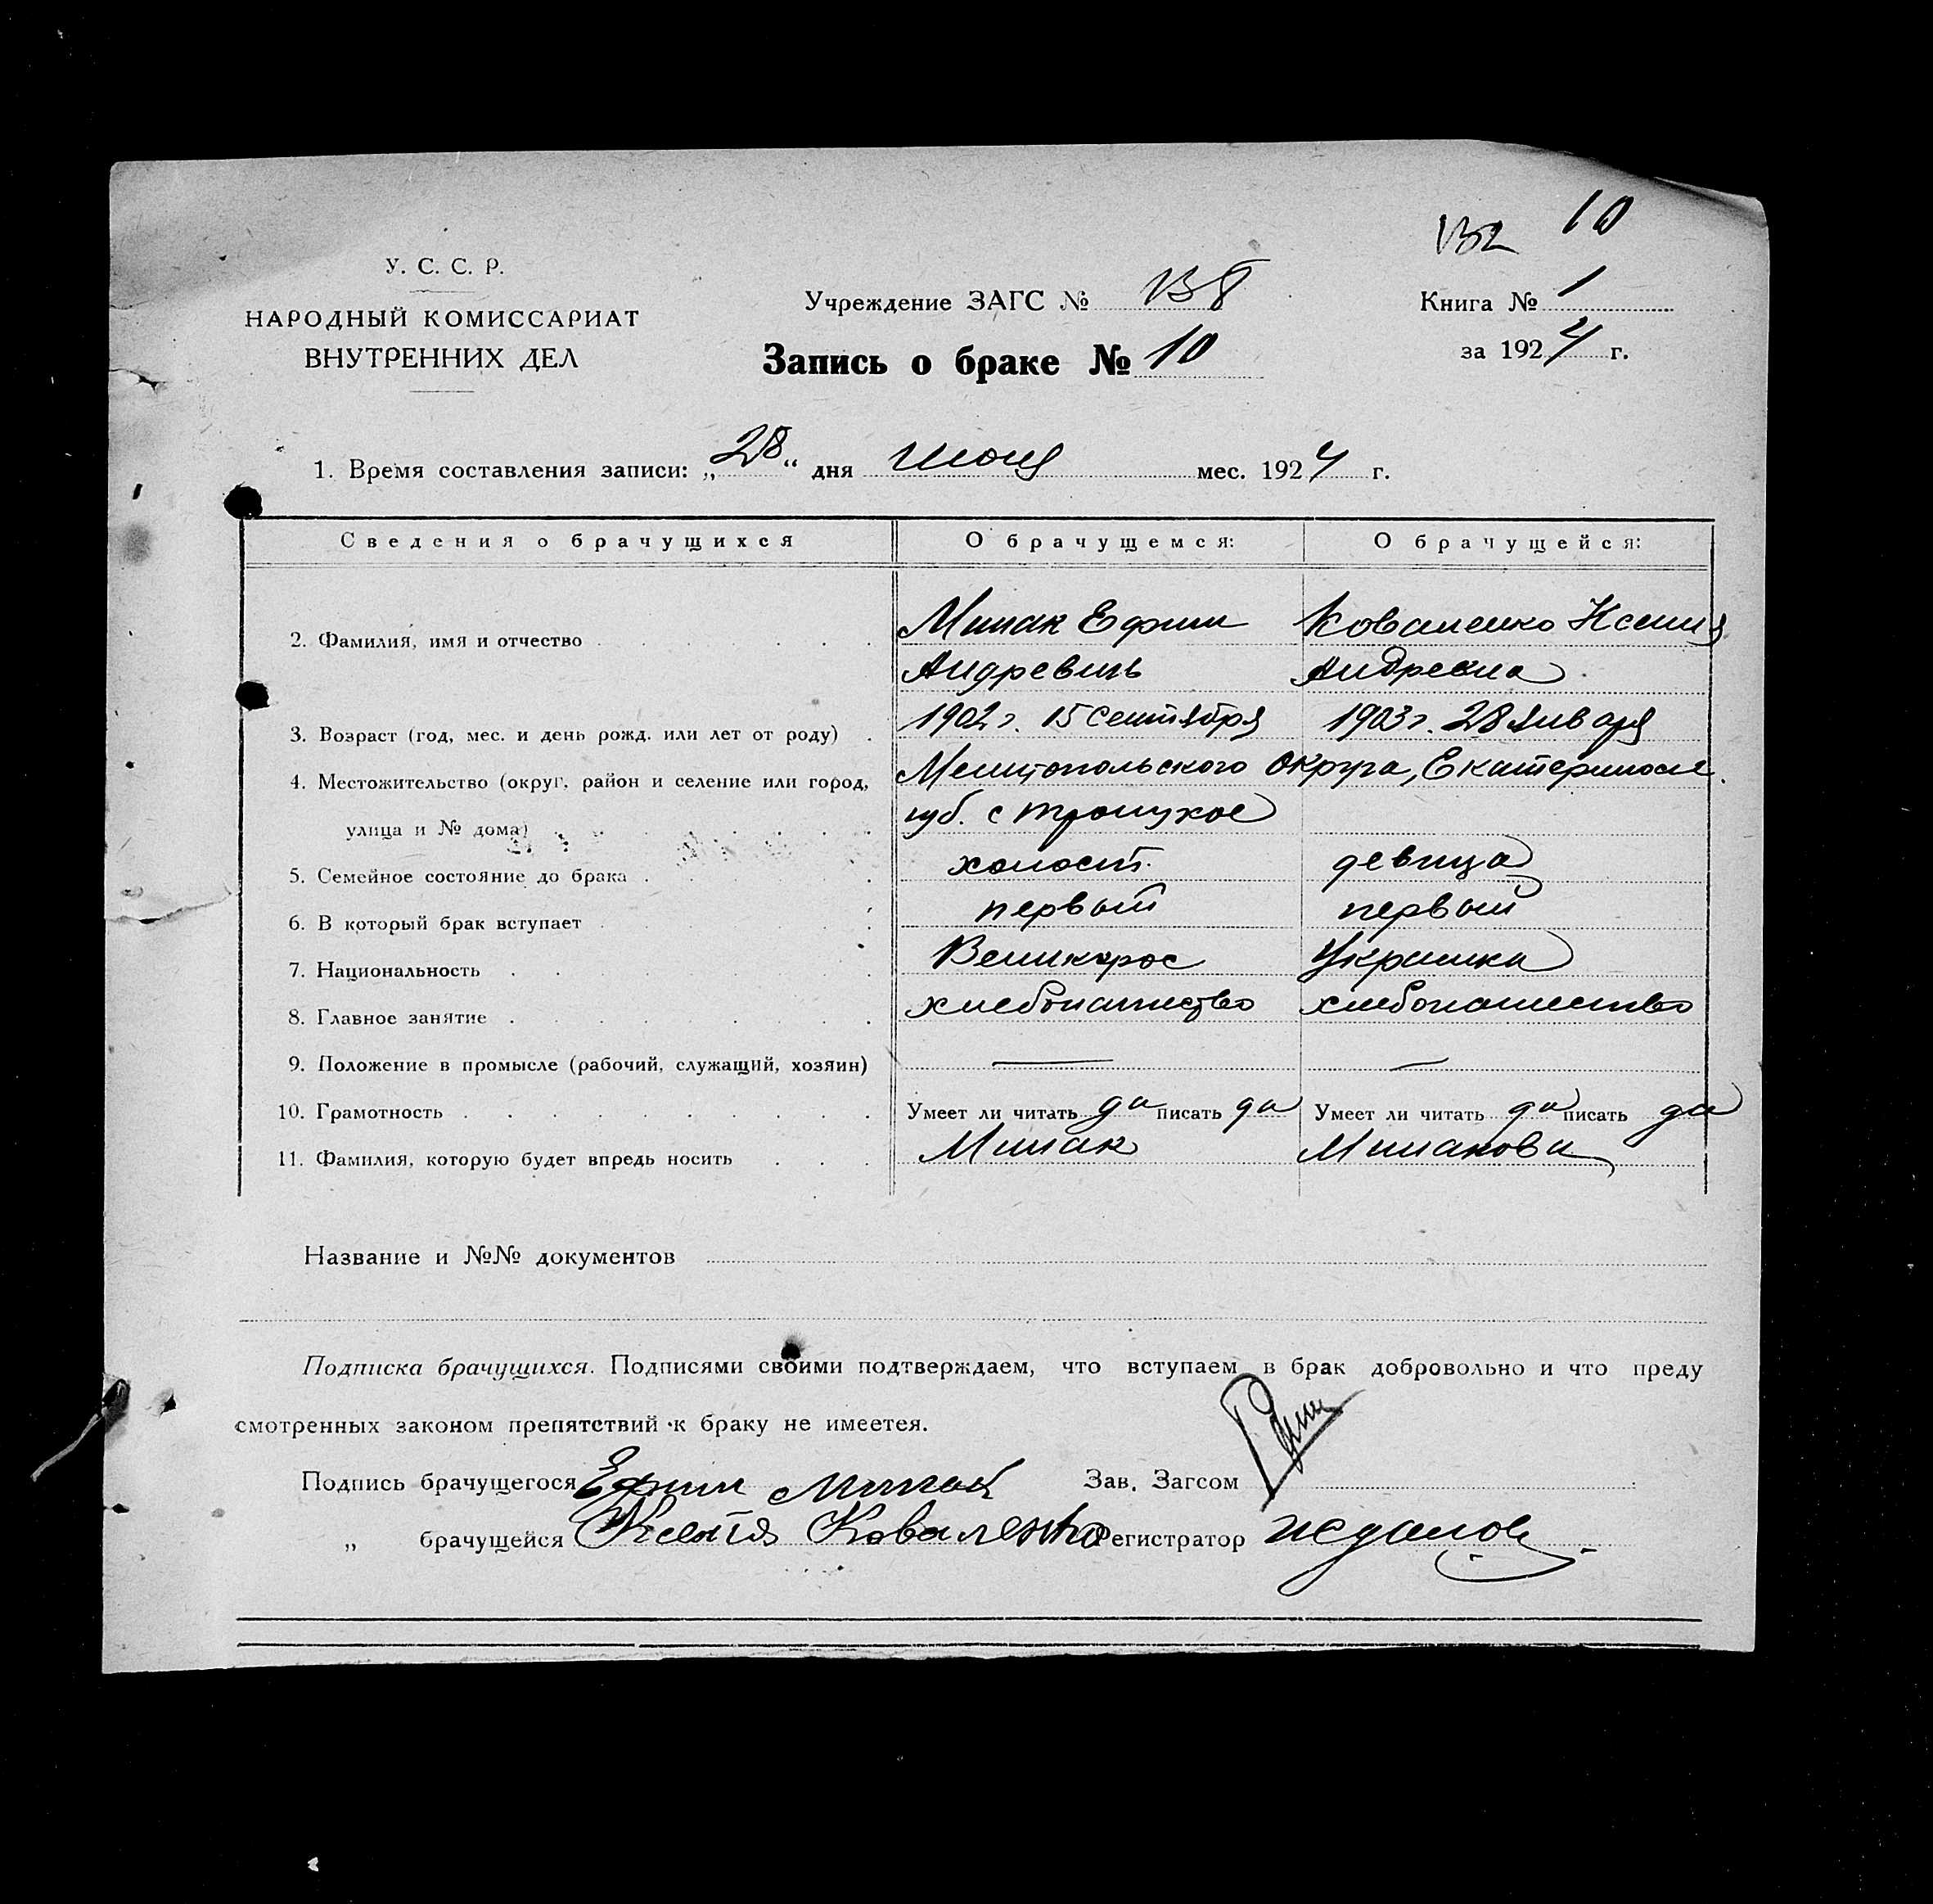 132 10
У. С. С. Р.
НАРОДНЫЙ КОМИССАРИАТ
ВНУТРЕННИХ ДЕЛ
Учреждение ЗАГС №
Запись о браке № 10
Книга № 1
за 1924 г.
1. Время составления записи: „28“ дня июня мес. 1924 г.
Сведения о брачущихся О брачущемся: О брачущейся:
2. Фамилия, имя и отчество Ефим Коваленко Ксения
Андревичь Андревна
3. Возраст (год, мес. и день рожд. или лет от роду) 1902 г. 15 Сентября 1903 г. 28 Января
4. Местожительство (округ, район и селение или город, Мелитопольского Округа, Екатериносл.
улица и № дома) губ. с Троицкое
5. Семейное состояние до брака холост. девица
6. В который брак вступает первый первый
7. Национальность Великорос Украинка
8. Главное занятие хлебопашество хлебопашество
9. Положение в промысле (рабочий, служащий, хозяин) — —
10. Грамотность Умеет ли читать да писать да Умеет ли читать да писать да
11. Фамилия, которую будет впредь носить
Название и №№ документов
Подписка брачущихся. Подписями своими подтверждаем, что вступаем в брак добровольно и что преду
смотренных законом препятствий к браку не имеетея.
Подпись брачущегося Ефим Зав. Загсом
„ брачущейся Ксения Коваленко Регистратор